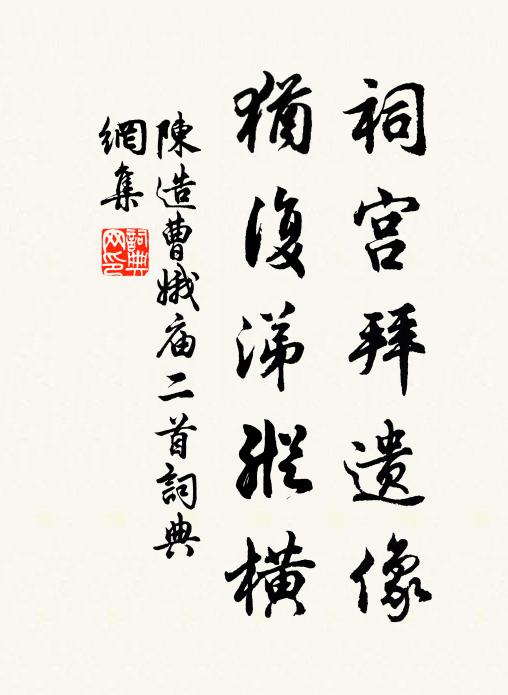 祠宫拜遗像
猶復涕縱橫
陳造曹娥庙二首詞典
網集
詞典
网印